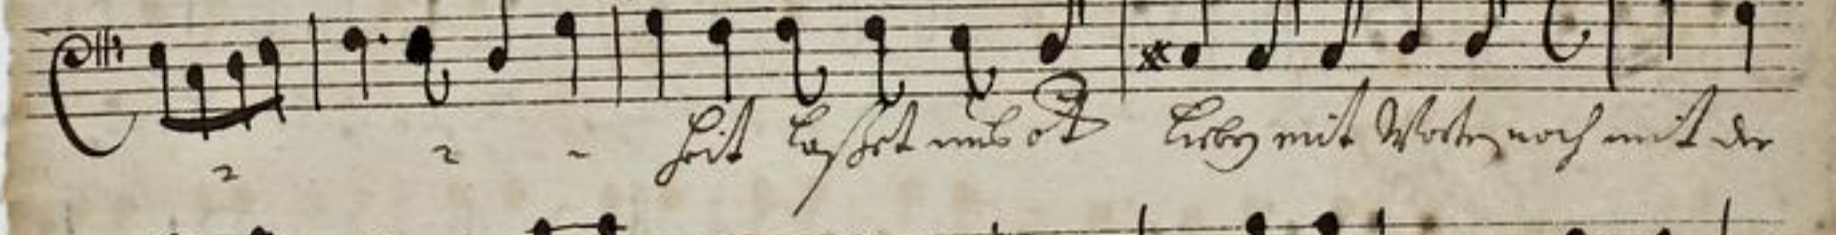 heit laßet uns nicht lieben mit Worten noch mit der